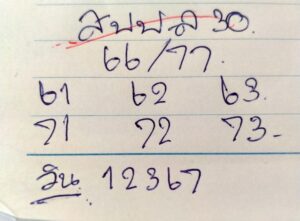 30.
66/77.
61 62 63.
71 72 73-
วิน 12367